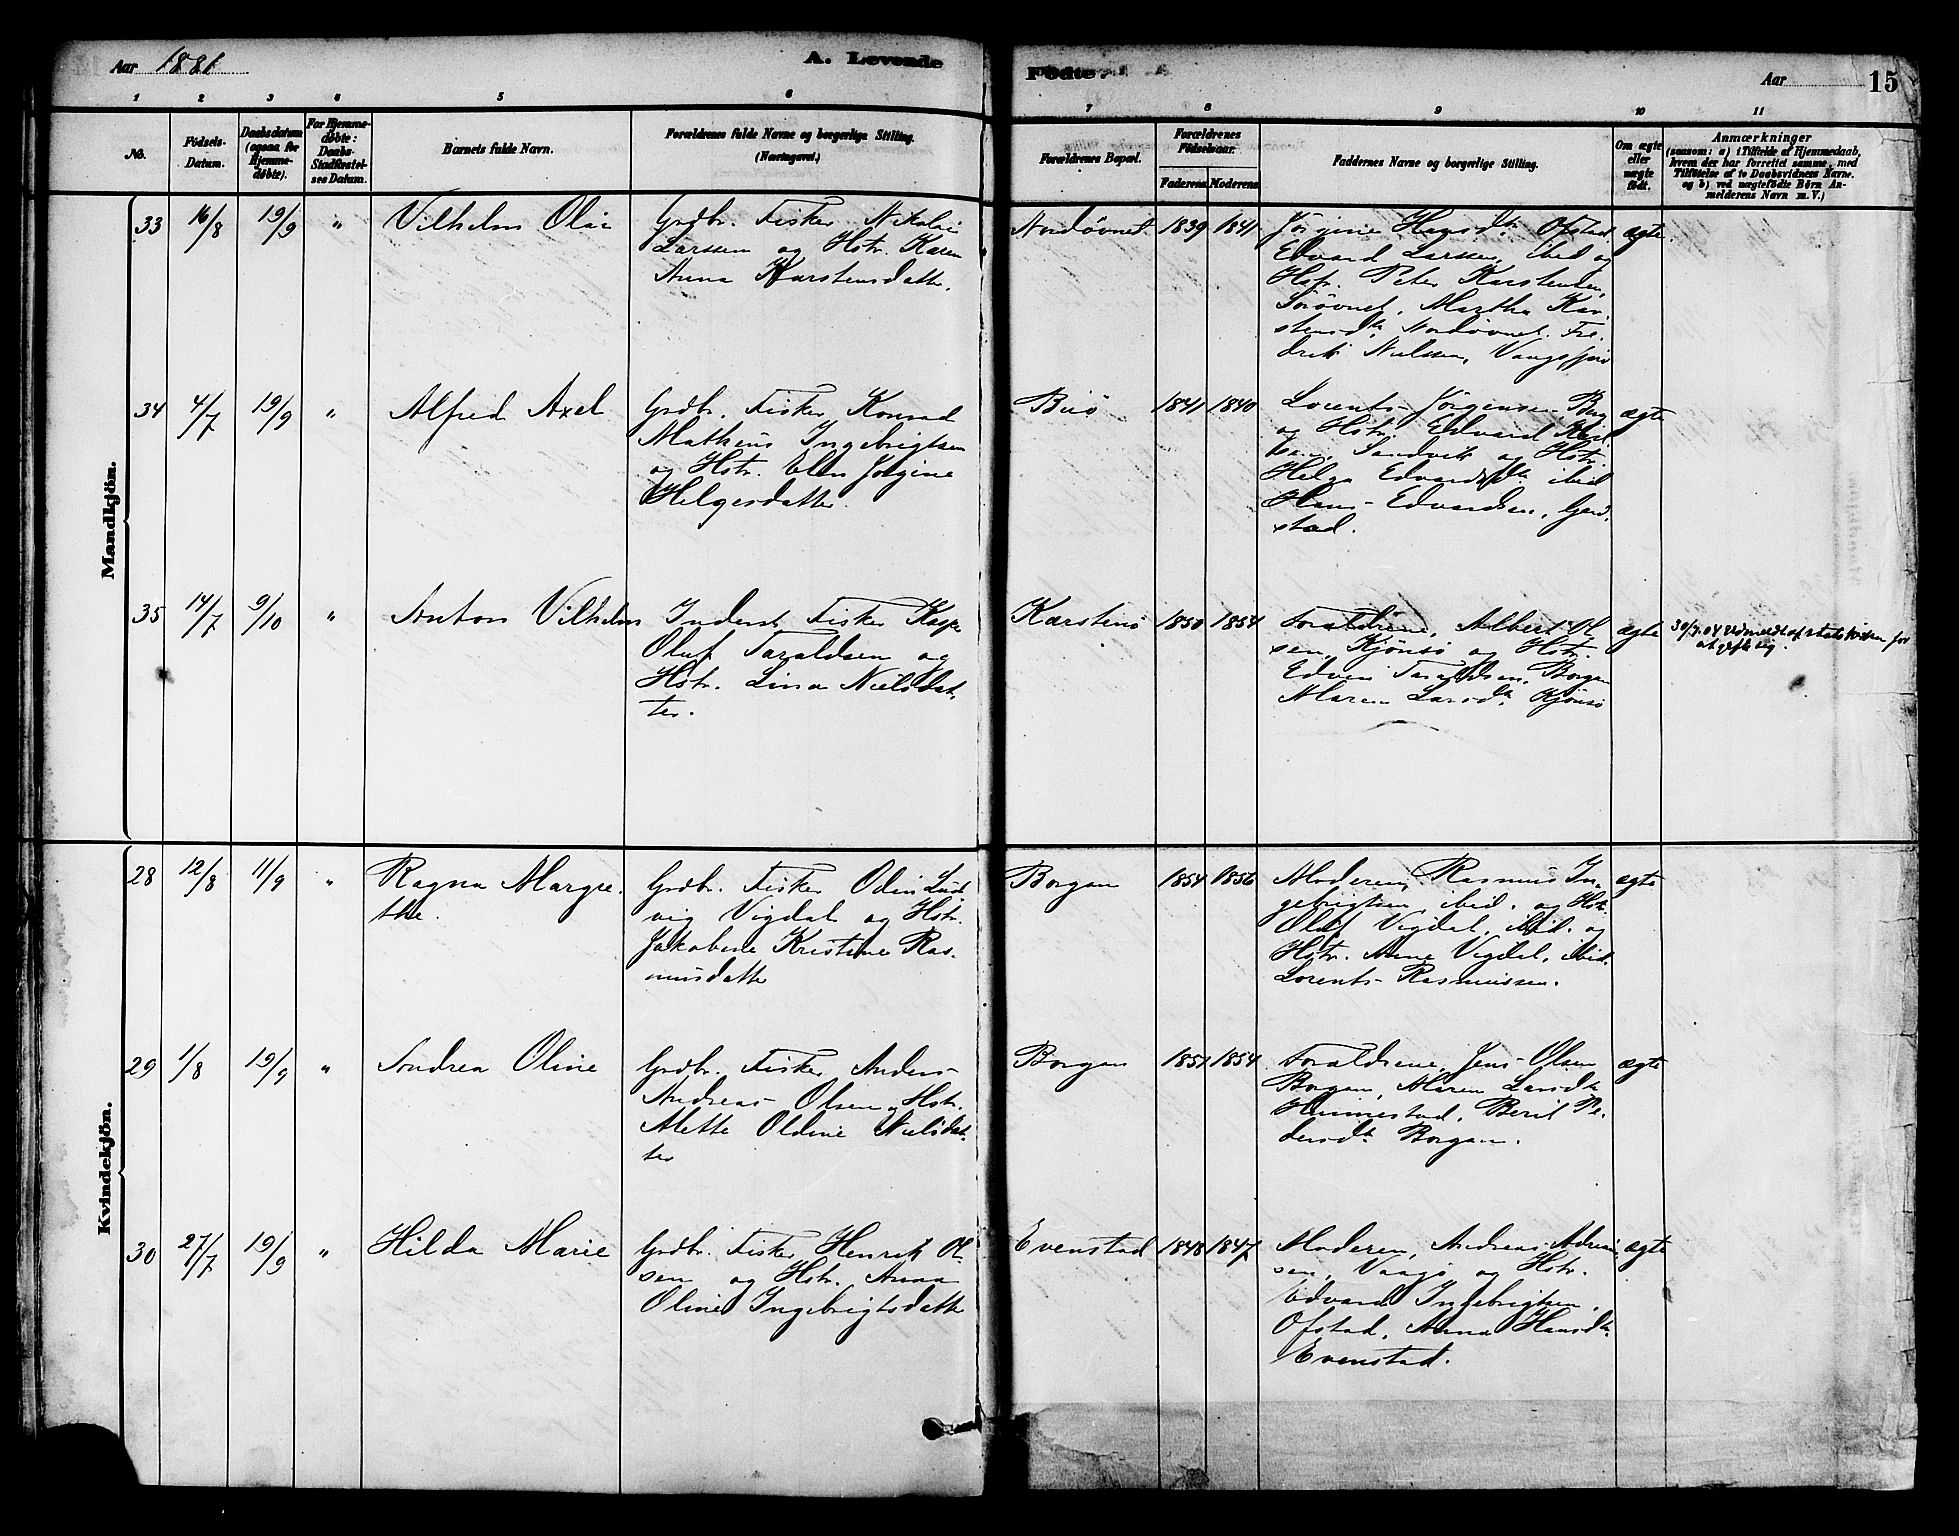 Aar 1881
A. Levende
Fødte.
Aar
15
1 2 3 4 5 6
7 8 9 10 11
No.
Födsels-
Datum.
Daabsdatum
(ogsaa for
Hjemme-
døbte).
For Hjemme-
døbte:
Daabs-
Stadfæstel-
ses Datum.
Barnets fulde Navn.
Forældrenes fulde Navne og borgerlige Stilling.
(Næringsvei.)
Forældrenes Bopæl.
Forældrenes
Födselsaar.
Faderens Moderens
Faddernes Navne og borgerlige Stilling.
Om ægte
eller
uægte
født.
Anmærkninger
(saasom: a) i Tilfælde af Hjemmedaab,
hvem der har forrettet samme, med
Tilföielse af to Daabsvidners Navne.
og b) ved uægtefödte Börn An-
melderens Navn m. V.)
Mandkjön.
33 16/8 19/9 " Vilhelm Olai
Grdbr. Fisker Nikolai
Larssen og Hstr. Karen
Anna Karstensdatter.
Nordøvnet 1839 1841
Jörgine Hansdtr. Ofstad.
Edvard Larssen, ibid og
Hstr. Peter Karstensen,
Sörövnet, Martha Kar-
stensdtr. Nordövnet. Fre-
drik Nielsen,
ægte.
34 4/7 19/9 " Alfred Axel
Grdbr. Fisker Konrad
Matheus Ingebrigtsen
og Hstr. Elen Jörgine
Helgesdatter.
1841 1840
Lorents Jörgensen
og Hstr. Edvard
Sandvik og Hstr.
Helga Edvardsdtr. ibid
Hans Edvardsen,
stad.
ægte
35 14/7 9/10 " Anton Vilhelm
Inderst Fisker
Oluf Taraldsen og
Hstr. Lina Nielsdat-
ter.
Karstenö 1850 1854
Forældrene, Albert Ol-
sen, Kjönsö og Hstr.
Edvin Taraldsen, Borgan
Maren Larsdtr. Kjönsö
ægte
30/9.04 Udmeldt af statskirken for
at gifte sig.
Kvindekjön.
28 12/8 11/9 " Ragna Margre-
the.
Grdbr. Fisker Odin Lud-
vig Vigdal og Hstr.
Jakobine Kristine Ras-
musdatter
Borgan 1854 1856
Moderen, Rasmus In-
gebrigtsen ibid. og Hstr.
Oluf Vigdal, ibid. og
Hstr. Anne Vigdal, ibid.
Lorents Rasmussen.
ægte
29 1/8 19/9 " Andrea Oline
Grdbr. Fisker Anders
Andreas Olsen og Hstr.
Mette Oldine Nielsdat-
ter
Borgan 1851 1854
Forældrene, Jens Olsen
Borgan, Maren Larsdtr.
Hunnestad, Beril Pe-
dersdtr. Borgan.
ægte
30 27/7 19/9 " Hilda Marie
Grdbr. Fisker Henrik Ol-
sen og Hstr. Anna
Oline Ingebrigtsdatter
Evenstad 1848 1847
Moderen, Andreas Adrian-
sen, Vaagö og Hstr.
Edvard Ingebrigtsen,
Ofstad, Anna Hansdtr.
Evenstad.
ægte